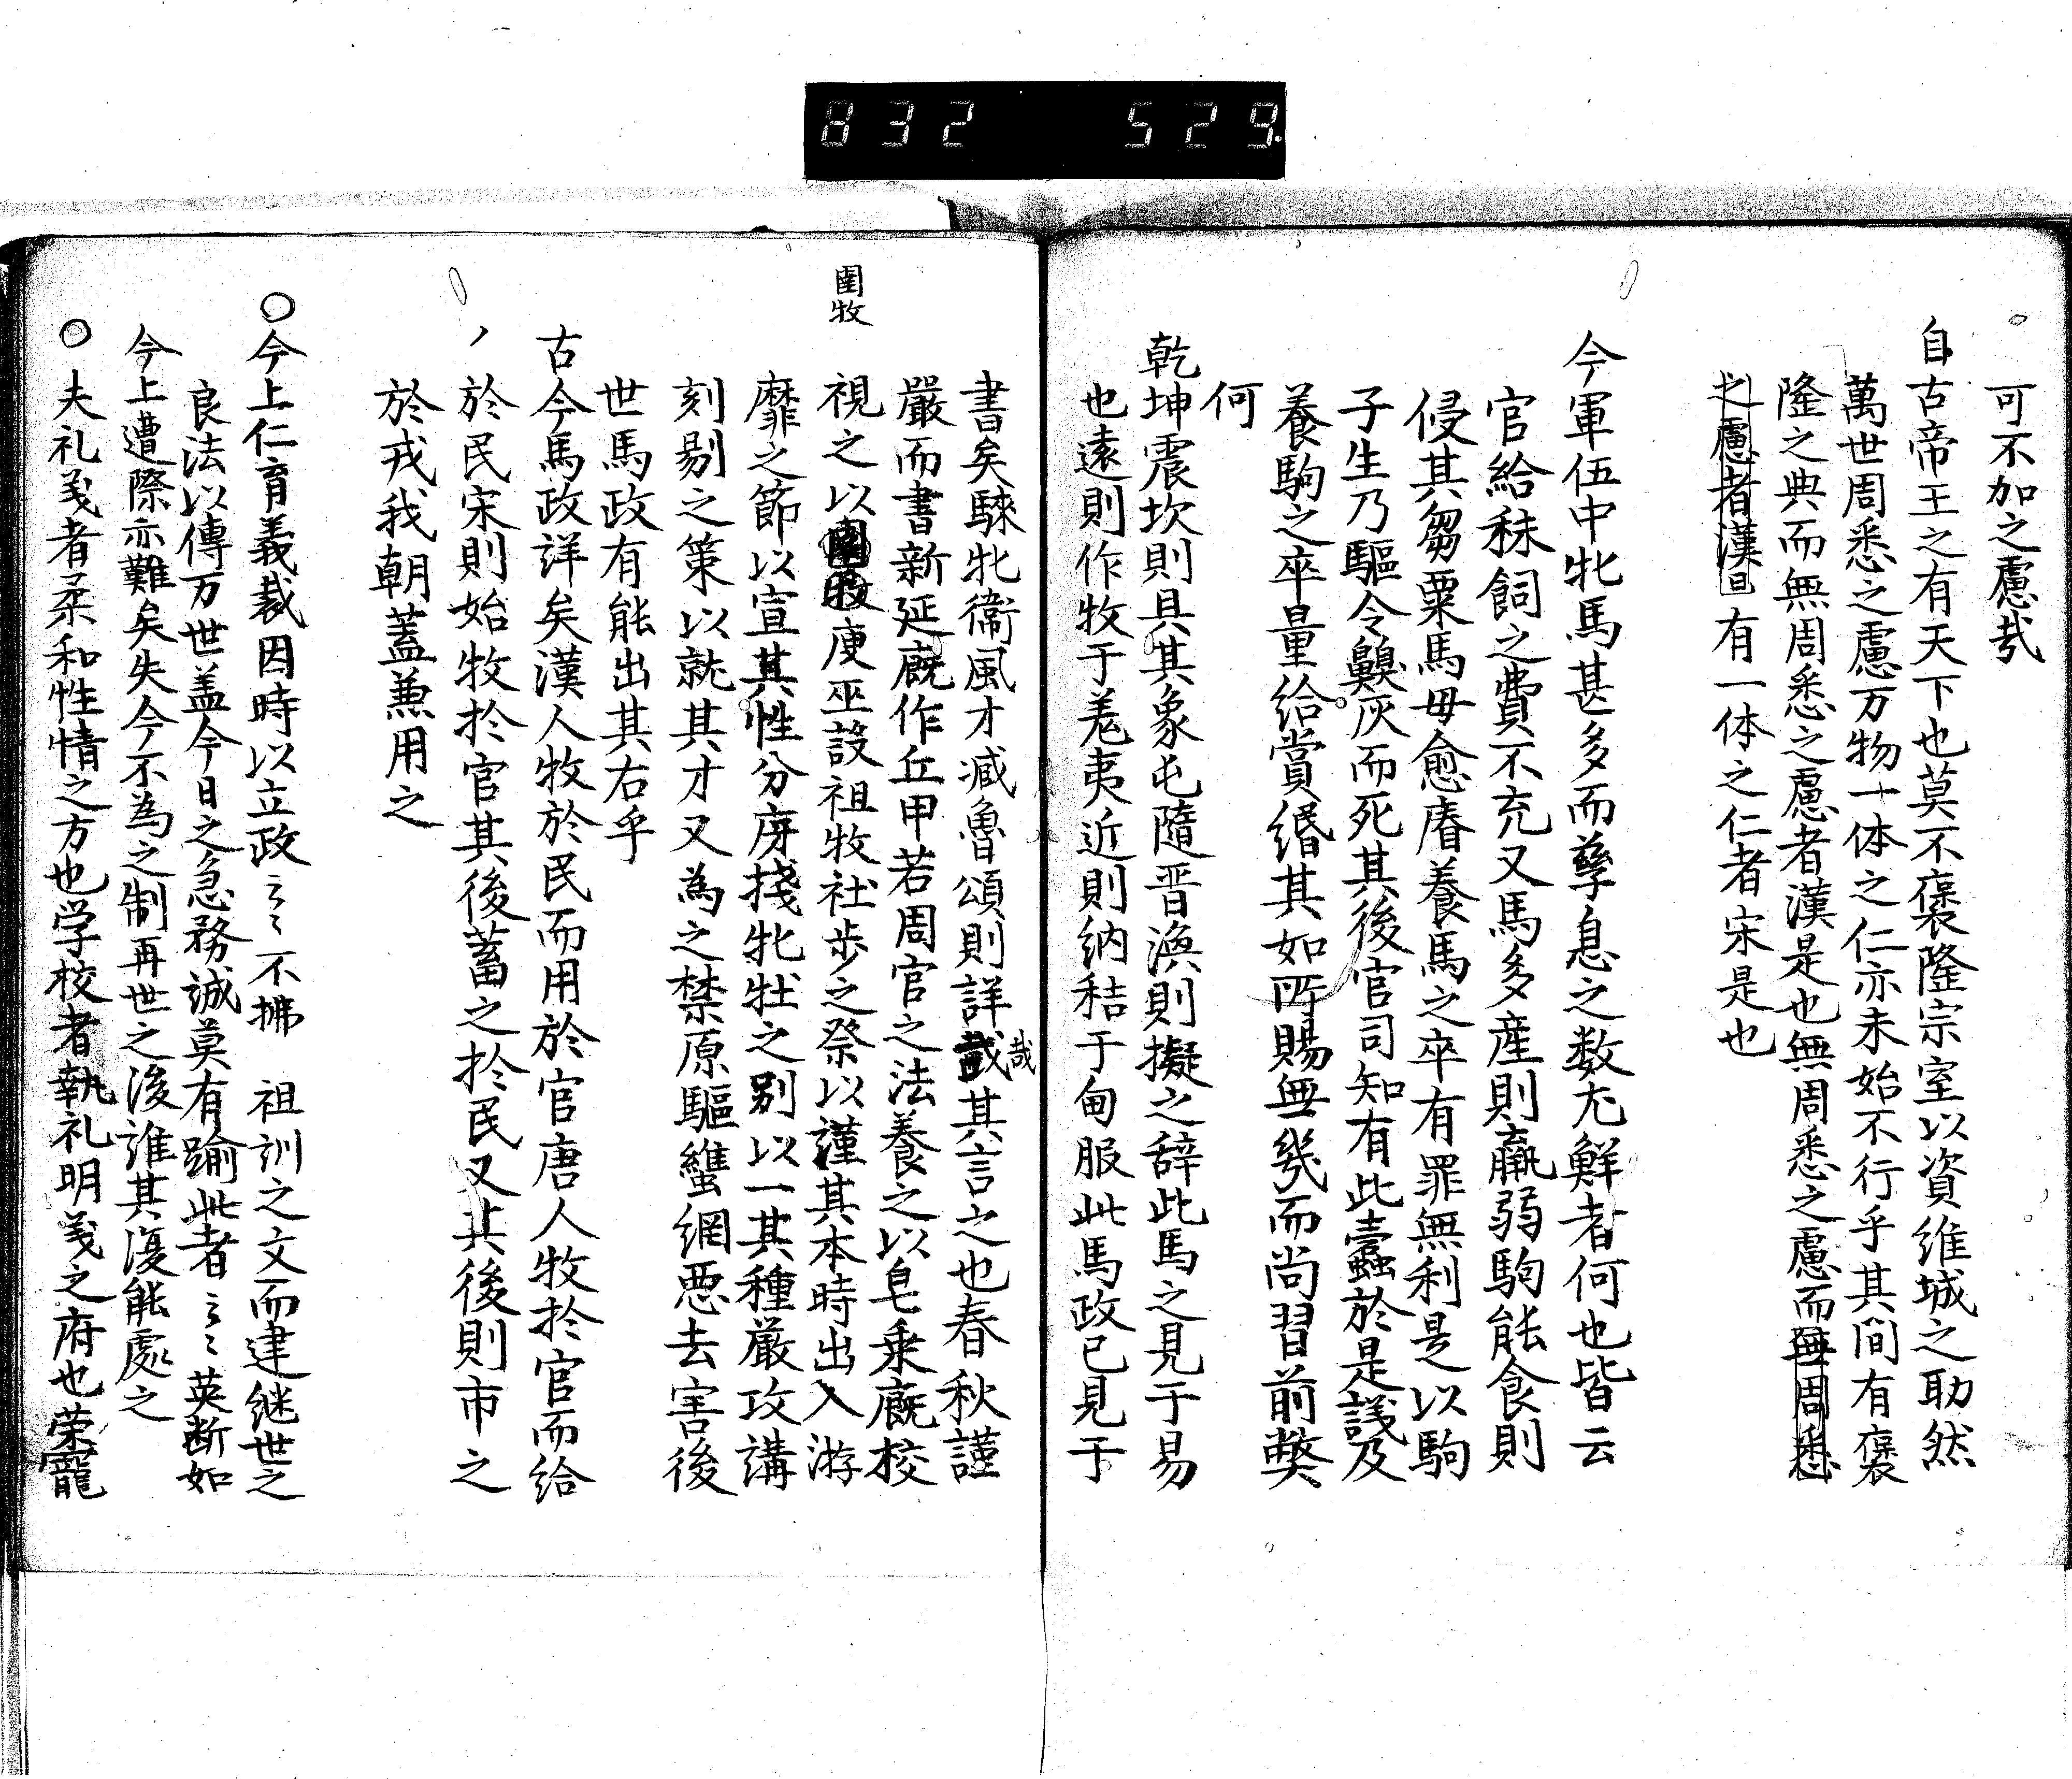 832 529
可不加之慮㢤
自古帝王之有天下也莫不襃隆宗室以資維城之助然
萬世周悉之慮万物一体之仁亦未始不行乎其間有襃
隆之典而無周悉之慮者漢是也無周悉之慮而無周悉
之慮者漢是有一体之仁者宋是也
今軍伍中牝馬甚多而孳息之数尤鮮者何也皆云
官給秣飼之費不充又馬多產則羸弱駒能食則
侵其芻粟馬毋愈瘠養馬之卒有罪無利是以駒
子生乃驅令齅灰而死其後官司知有此蠹於是議及
養駒之卒量給賞緡其如所賜無幾而尚習前獘
何
乾坤震坎則具其象屯隨晋渙則擬之辞此馬之見于易
也遠則作牧于羗夷近則納秸于甸服此馬政已見于
書矣騋牝衞風才减魯頌則詳㦲其言之也春秋謹
㦲
嚴而書新延廐作丘甲若周官之法養之以皂乗廐校
圉牧
視之以圉牧庾巫設祖牧社步之祭以謹其本時出入游
靡之節以宣其性分房棧牝牡之别以一其種嚴攻講
刻剔之策以就其才又為之禁原驅蠶網惡去害後
世馬政有能出其右乎
古今馬政詳矣漢人牧於民而用於官唐人牧扵官而給
於民宋則始牧扵官其後蓄之扵民又其後則市之
於戎我朝蓋兼用之
〇今上仁育義裁因時以立政云云不拂 祖訓之文而建継世之
良法以傳万世盖今日之急務誠莫有踰此者云云英断如
今上遭際亦難矣失今不為之制再世之後誰其復能處之
〇夫礼義者柔和性情之方也学校者執礼明義之府也荣寵